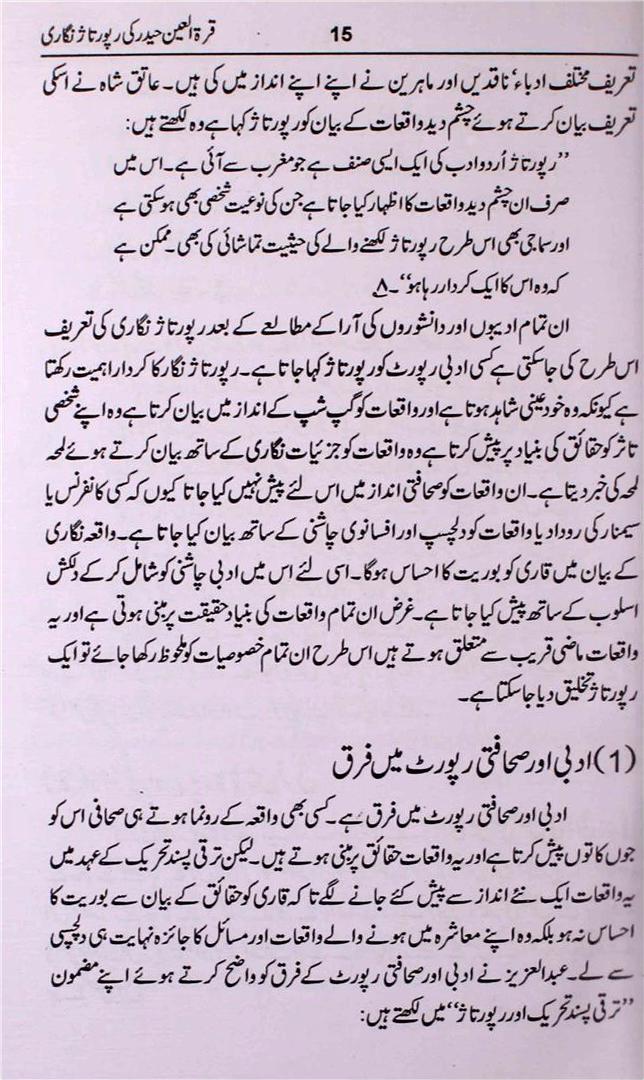 قرۃ العین حیدر کی رپورتاژ نگاری 15
تعریف مختلف ادباء‘ ناقدین اور ماہرین نے اپنے اپنے انداز میں کی ہیں۔ عاتق شاہ نے اسکی
تعریف بیان کرتے ہوئے چشم دید واقعات کے بیان کو رپورتاژ کہا ہے وہ لکھتے ہیں:
”رپورتاژ اُردو ادب کی ایک ایسی صنف ہے جو مغرب سے آئی ہے۔ اس میں
صرف ان چشم دید واقعات کا اظہار کیا جاتا ہے جن کی نوعیت شخصی بھی ہو سکتی ہے
اور سماجی بھی اس طرح رپورتاژ لکھنے والے کی حیثیت تماشائی کی بھی۔ ممکن ہے
کہ وہ اس کا ایک کردار رہا ہو“۔ ۸
ان تمام ادیبوں اور دانشوروں کی آرا کے مطالعے کے بعد رپورتاژ نگاری کی تعریف
اس طرح کی جا سکتی ہے کسی ادبی رپورٹ کو رپورتاژ کہا جاتا ہے۔ رپورتاژ نگار کا کردار اہمیت رکھتا
ہے کیونکہ وہ خود عینی شاہد ہوتا ہے اور واقعات کو گپ شپ کے انداز میں بیان کرتا ہے وہ اپنے شخصی
تاثر کو حقائق کی بنیاد پر پیش کرتا ہے وہ واقعات کو جزئیات نگاری کے ساتھ بیان کرتے ہوئے لمحہ
لمحہ کی خبر دیتا ہے۔ ان واقعات کو صحافتی انداز میں اس لئے پیش نہیں کیا جاتا کیوں کہ کسی کانفرنس یا
سیمنار کی روداد یا واقعات کو دلچسپ اور افسانوی چاشنی کے ساتھ بیان کیا جاتا ہے۔ واقعہ نگاری
کے بیان میں قاری کو بوریت کا احساس ہوگا۔ اسی لئے اس میں ادبی چاشنی کو شامل کر کے دلکش
اسلوب کے ساتھ پیش کیا جاتا ہے۔ غرض ان تمام واقعات کی بنیاد حقیقت پر مبنی ہوتی ہے اور یہ
واقعات ماضی قریب سے متعلق ہوتے ہیں اس طرح ان تمام خصوصیات کو ملحوظ رکھا جائے تو ایک
رپورتاژ تخلیق دیا جا سکتا ہے۔
(1) ادبی اور صحافتی رپورٹ میں فرق
ادبی اور صحافتی رپورٹ میں فرق ہے۔ کسی بھی واقعہ کے رونما ہوتے ہی صحافی اس کو
جوں کا توں پیش کرتا ہے اور یہ واقعات حقائق پر مبنی ہوتے ہیں۔ لیکن ترقی پسند تحریک کے عہد میں
یہ واقعات ایک نئے انداز سے پیش کئے جانے لگے تا کہ قاری کو حقائق کے بیان سے بوریت کا
احساس نہ ہو بلکہ وہ اپنے معاشرہ میں ہونے والے واقعات اور مسائل کا جائزہ نہایت ہی دلچسپی
سے لے۔ عبدالعزیز نے ادبی اور صحافتی رپورٹ کے فرق کو واضح کرتے ہوئے اپنے مضمون
”ترقی پسند تحریک اور رپورتاژ“ میں لکھتے ہیں: